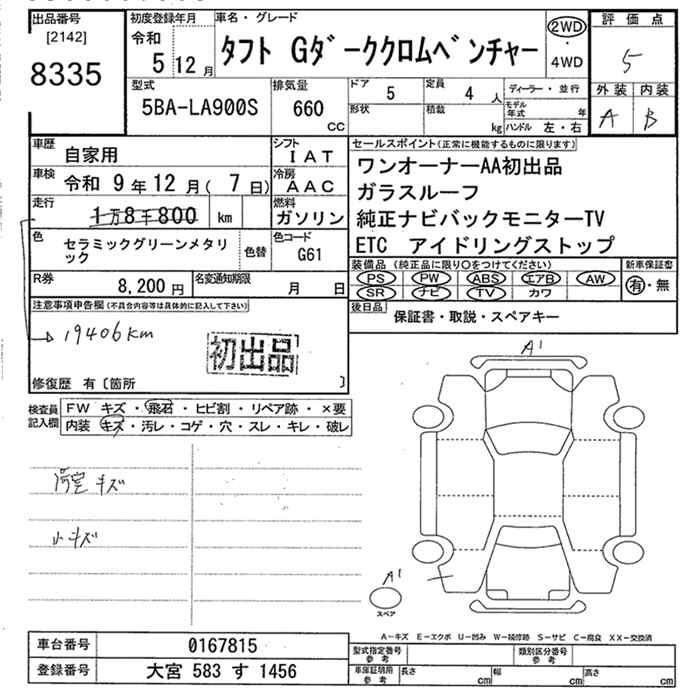 出品番号
[2142]
8335
初度登録年月
令和
5 12 月
車名・グレード
タフト Gダーククロムベンチャー
2WD
・
4WD
評価点
5
外装 内装
A B
型式
5BA-LA900S
排気量
660
CC
ドア
5
定員
4 人
形状
積載
kg
ディーラー・並行
モデル年式 年
ハンドル 左・右
車歴
自家用
シフト
IAT
車検
令和 9年12月( 7日)
冷房
AAC
走行
1万8千800 km
燃料
ガソリン
色
セラミックグリーンメタリック
色替
色コード
G61
R券
8,200 円
名変通知期限
月 日
セールスポイント(正常に機能するものに限ります)
ワンオーナーAA初出品
ガラスルーフ
純正ナビバックモニターTV
ETC アイドリングストップ
装備品 (純正品に限り○をつけてください)
PS PW ABS エアB AW
SR ナビ TV カワ
新車保証書
有・無
後日品
保証書・取説・スペアキー
注意事項申告欄(不具合内容等は具体的に記入して下さい)
19406km
初出品
修復歴 有〔箇所 〕
検査員
記入欄
FW キズ・飛石・ヒビ割・リペア跡・×要
内装 キズ・汚レ・コゲ・穴・スレ・キレ・破レ
荷室キズ
小キズ
A1
A1
スペア
A-キズ E-エクボ U-凹み W-補修跡 S-サビ C-腐食 XX-交換済
車台番号
0167815
登録番号
大宮 583 す 1456
型式指定番号
参考
類別区分番号
参考
車庫証明用
参考
長さ cm
幅 cm
高さ cm